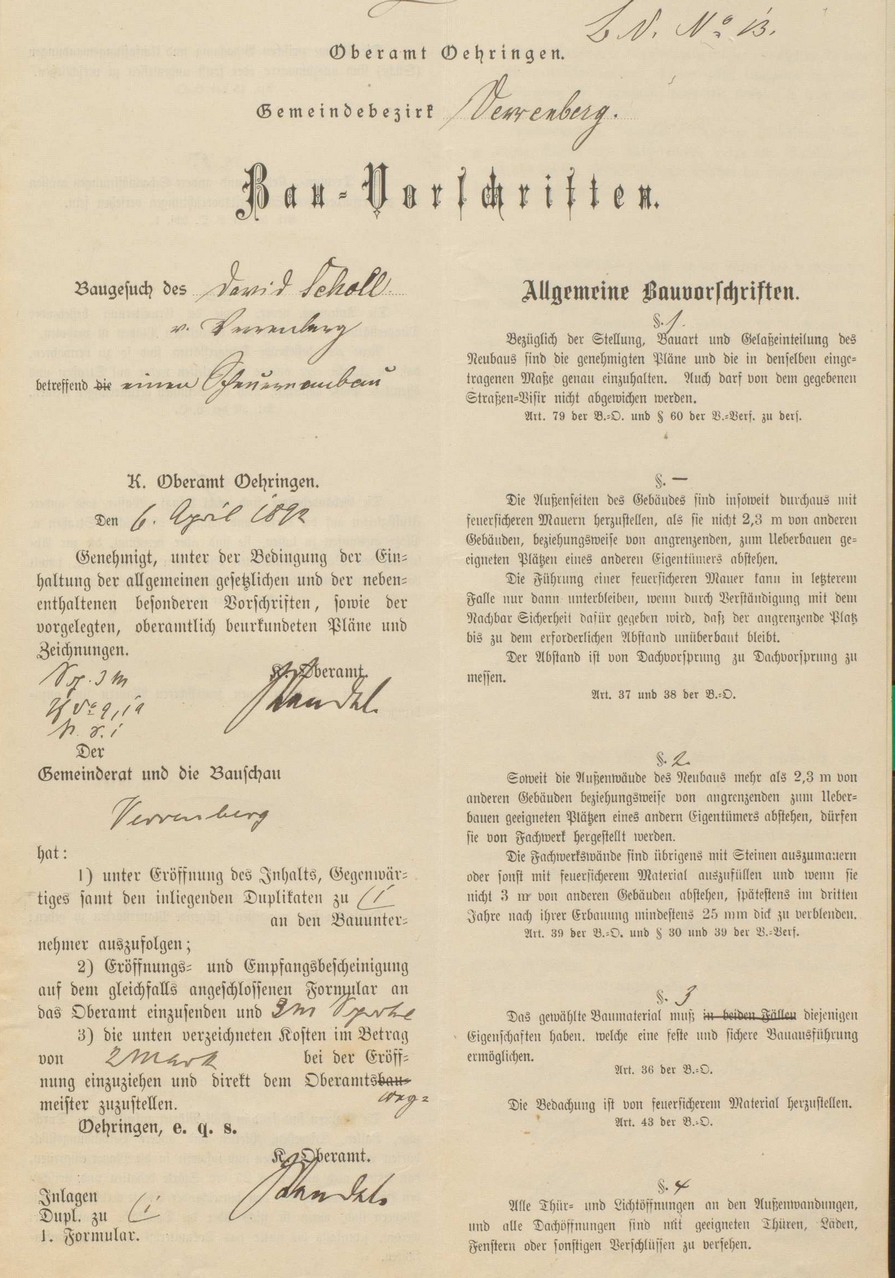 L. N. No 13.
Oberamt Oehringen.
Gemeindebezirk Verrenberg.
Bau-Vorschriften.
Baugesuch des David Scholl
v. Verrenberg
betreffend die einen Scheuernanbau
K. Oberamt Oehringen.
Den 6. April 1892
Genehmigt, unter der Bedingung der Ein-
haltung der allgemeinen gesetzlichen und der neben-
enthaltenen besonderen Vorschriften, sowie der
vorgelegten, oberamtlich beurkundeten Pläne und
Zeichnungen.
K. Oberamt.
Der
Gemeinderat und die Bauschau
Verrenberg
hat:
1) unter Eröffnung des Inhalts, Gegenwär-
tiges samt den inliegenden Duplikaten zu
an den Bauunter-
nehmer auszufolgen;
2) Eröffnungs- und Empfangsbescheinigung
auf dem gleichfalls angeschlossenen Formular an
das Oberamt einzusenden und
3) die unten verzeichneten Kosten im Betrag
von 2 Mark bei der Eröff-
nung einzuziehen und direkt dem Oberamtsbau-
meister zuzustellen.
Oehringen, e. q. s.
K. Oberamt.
Inlagen
Dupl. zu
1. Formular.
Allgemeine Bauvorschriften.
§. 1.
Bezüglich der Stellung, Bauart und Gelaßeinteilung des
Neubaus sind die genehmigten Pläne und die in denselben einge-
tragenen Maße genau einzuhalten. Auch darf von dem gegebenen
Straßen-Visir nicht abgewichen werden.
Art. 79 der B.-O. und § 60 der V.-Verf. zu ders.
§. —
Die Außenseiten des Gebäudes sind insoweit durchaus mit
feuersicheren Mauern herzustellen, als sie nicht 2,3 m von anderen
Gebäuden, beziehungsweise von angrenzenden, zum Ueberbauen ge-
eigneten Plätzen eines anderen Eigentümers abstehen.
Die Führung einer feuersicheren Mauer kann in letzterem
Falle nur dann unterbleiben, wenn durch Verständigung mit dem
Nachbar Sicherheit dafür gegeben wird, daß der angrenzende Platz
bis zu dem erforderlichen Abstand unüberbaut bleibt.
Der Abstand ist von Dachvorsprung zu Dachvorsprung zu
messen.
Art. 37 und 38 der B.-O.
§. 2.
Soweit die Außenwände des Neubaus mehr als 2,3 m von
anderen Gebäuden beziehungsweise von angrenzenden zum Ueber-
bauen geeigneten Plätzen eines andern Eigentümers abstehen, dürfen
sie von Fachwerk hergestellt werden.
Die Fachwerkswände sind übrigens mit Steinen auszumauern
oder sonst mit feuersicherem Material auszufüllen und wenn sie
nicht 3 m von anderen Gebäuden abstehen, spätestens im dritten
Jahre nach ihrer Erbauung mindestens 25 mm dick zu verblenden.
Art. 39 der B.-O. und § 30 und 39 der V.-Verf.
§. 3
Das gewählte Baumaterial muß in beiden Fällen diejenigen
Eigenschaften haben, welche eine feste und sichere Bauausführung
ermöglichen.
Art. 36 der B.-O.
Die Bedachung ist von feuersicherem Material herzustellen.
Art. 43 der B.-O.
§. 4
Alle Thür- und Lichtöffnungen an den Außenwandungen,
und alle Dachöffnungen sind mit geeigneten Thüren, Läden,
Fenstern oder sonstigen Verschlüssen zu versehen.